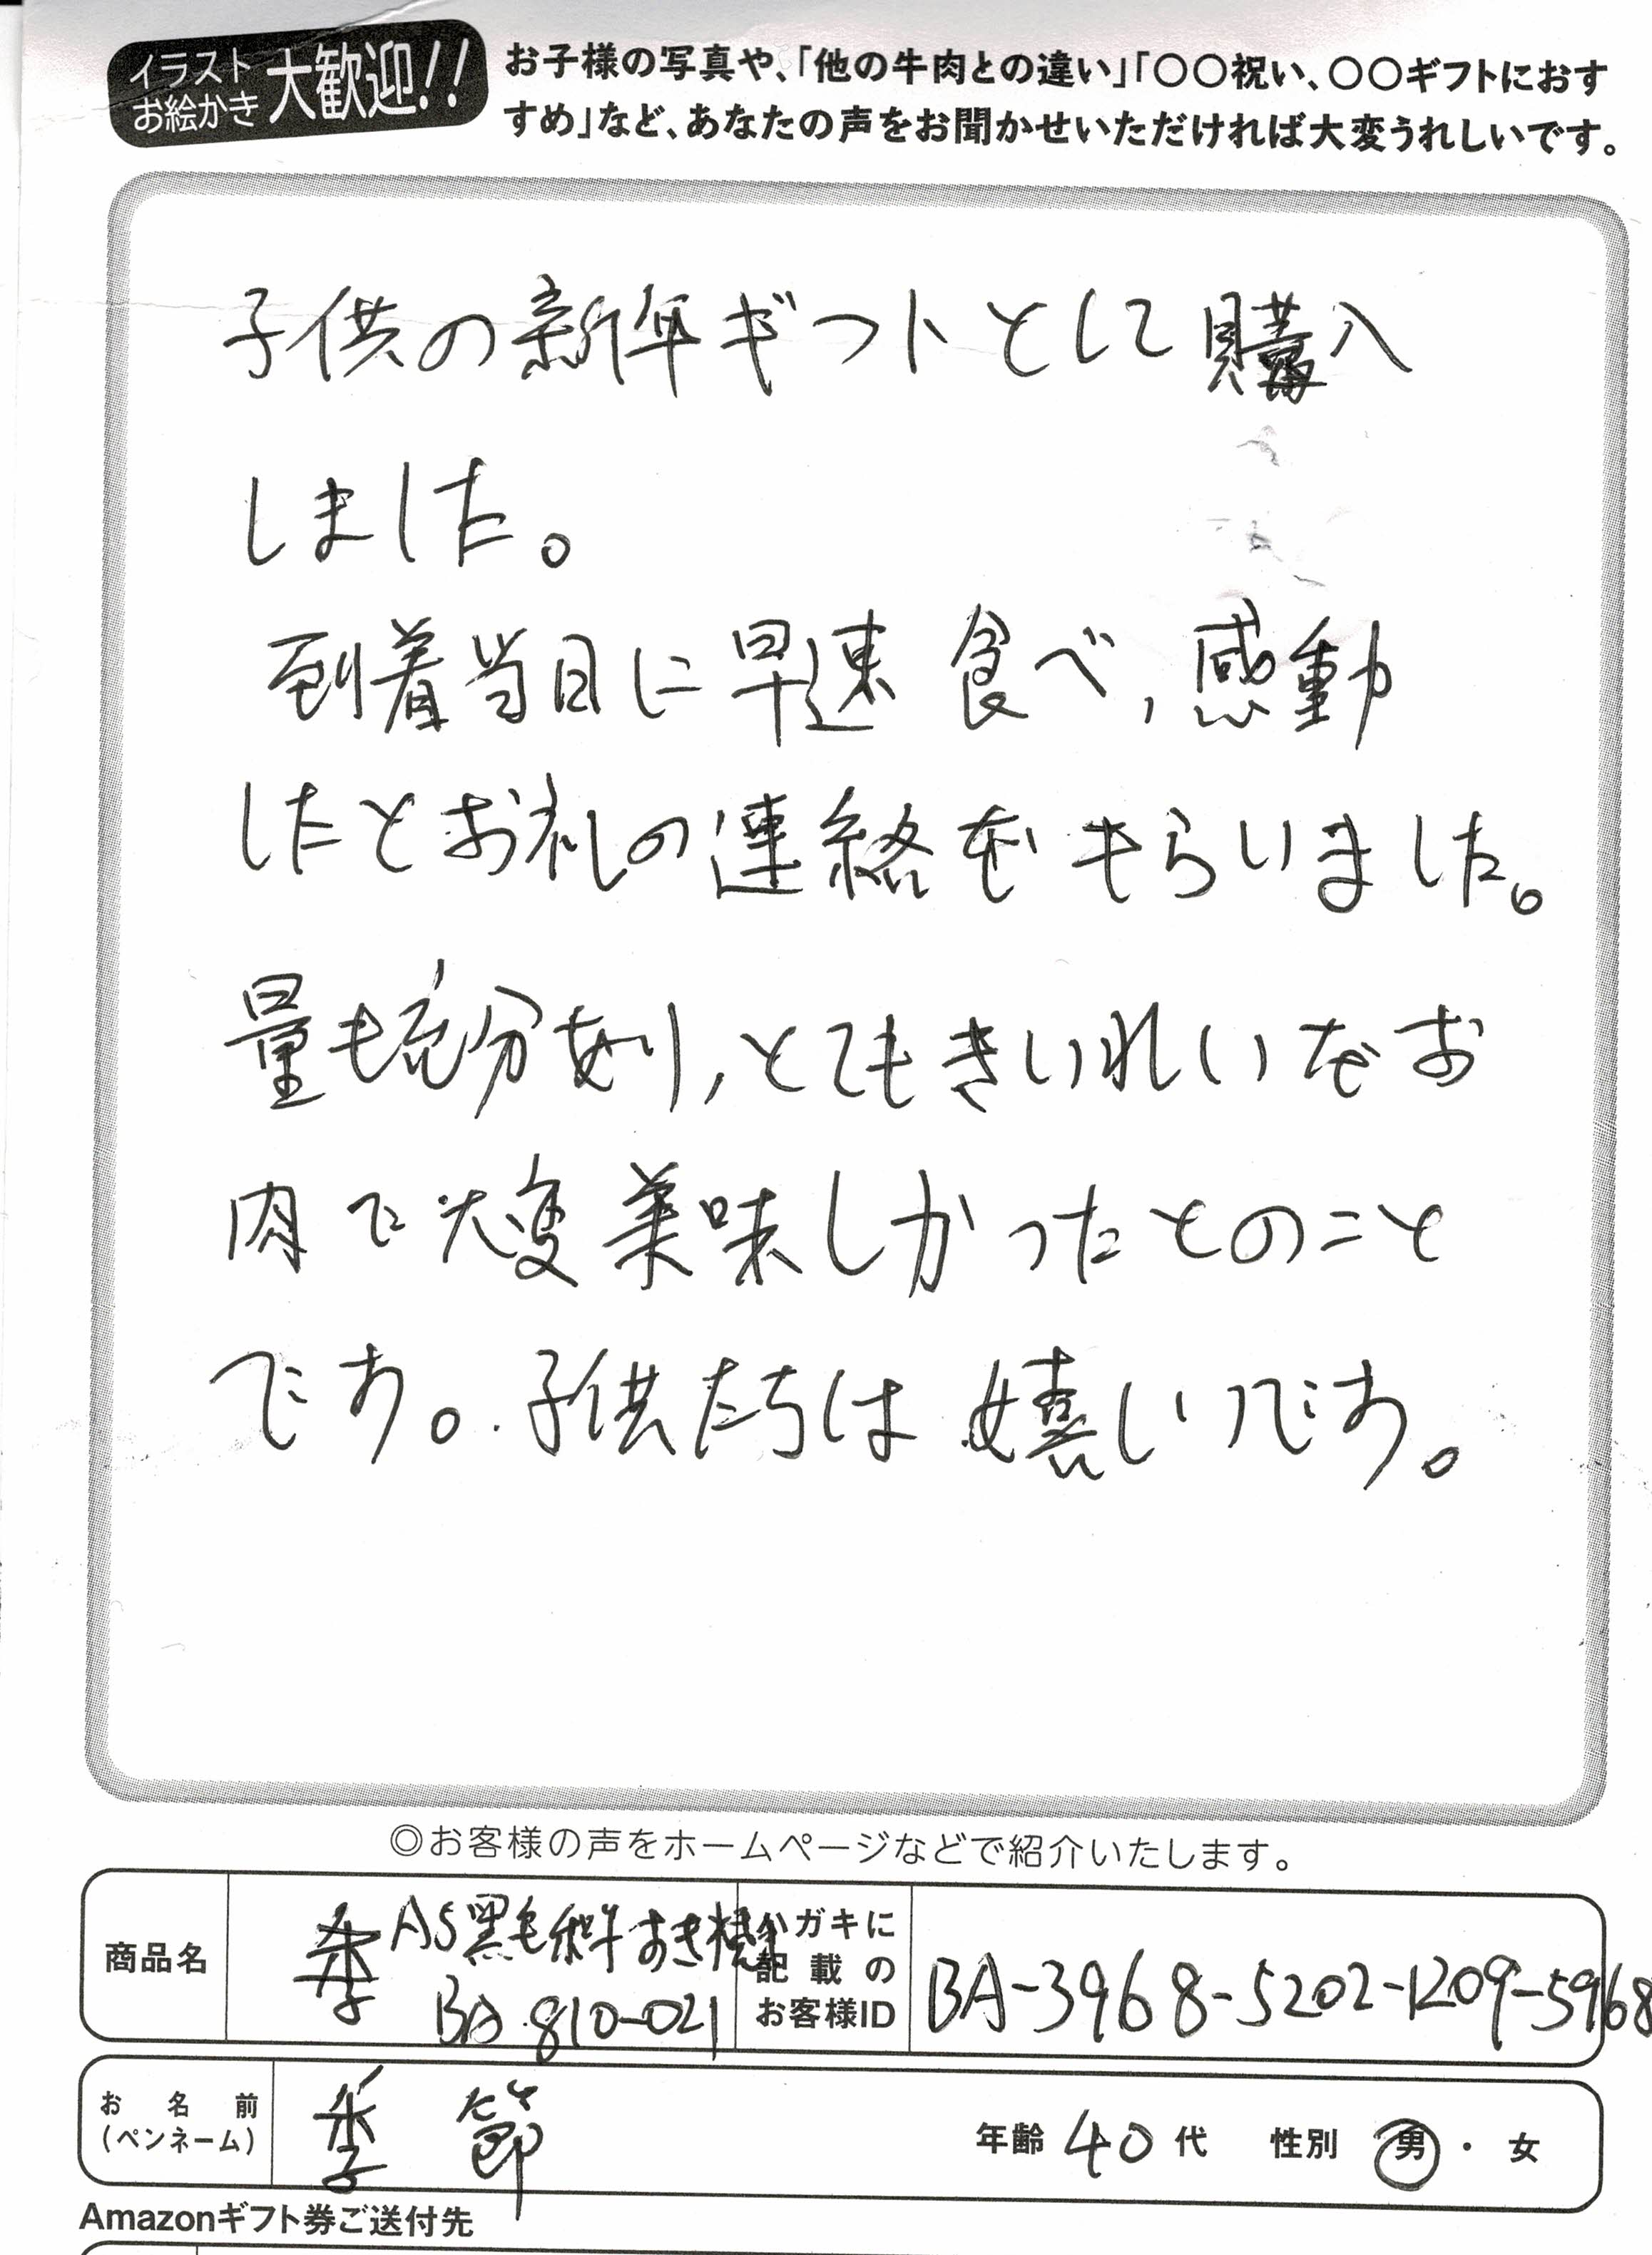 イラスト
お絵かき
大歓迎!!
お子様の写真や、「他の牛肉との違い」「〇〇祝い、〇〇ギフトにおす
すめ」など、あなたの声をお聞かせいただければ大変うれしいです。
子供の新年ギフトとして購入
しました。
到着当日に早速食べ,感動
したとお礼の連絡をもらいました。
量も充分あり,とてもきいれいなお
肉で大変美味しかったとのこと
です。子供たちは嬉しいです。
◎お客様の声をホームページなどで紹介いたします。
商品名
A5黒毛和牛すき焼
BA 810-021
ハガキに
記載の
お客様ID
BA-3968-5202-1209-5968
お名前
(ペンネーム)
季節
年齢 40 代 性別 男・女
Amazonギフト券ご送付先